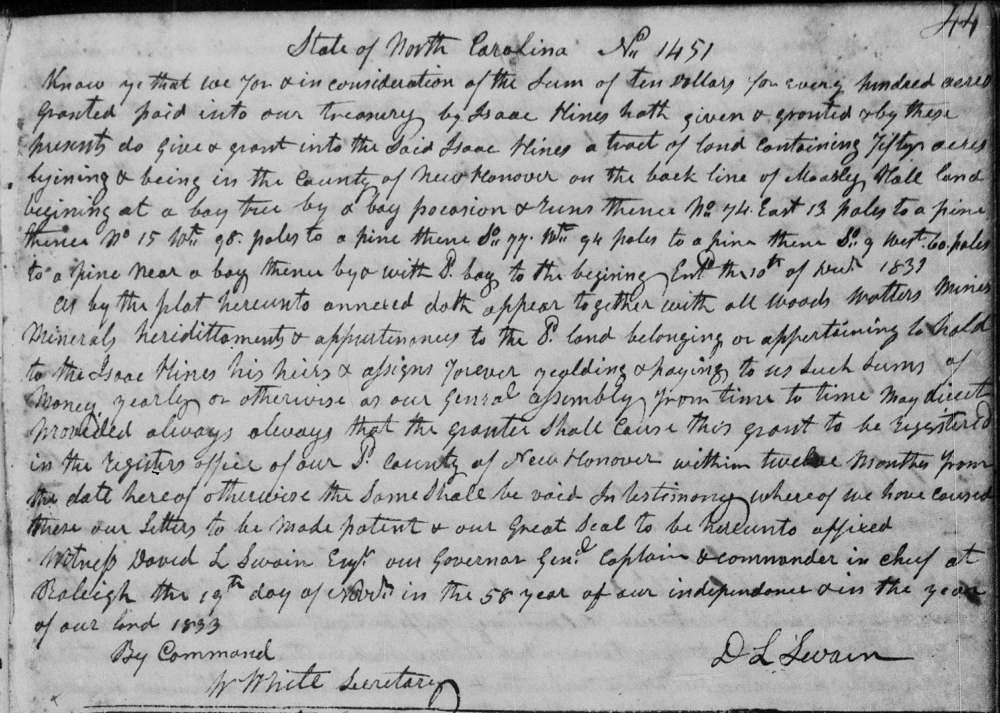 44
State of North Carolina No 1451
Know ye that we for & in consideration of the Sum of ten Dollars for every hundred acres
Granted paid into our treasurey by Isaac Hines hath given & granted & by these
presents do give & grant into the Said Isaac Hines a tract of land containing Fifty acres
lyining & being in the County of New Hanover on the back line of Hall land
begining at a bay tree by a bay pocosion & Runs thence No 74 East 13 poles to a pine
thence No 15 Wt 98 poles to a pine thence So 77 Wt 94 poles to a pine thence So 9 West 60 poles
to a pine near a bay thence by & with Sd bay to the begining Entd the 10th of 1833
As by the plat hereunto annexed doth appear together with all woods watters Mines
Minerals heriditaments & appurtinances to the Sd land belonging or appertaining to hold
to the Isaac Hines his heirs & assigns forever yealding & paying to us Such Sums of
Money yearly or otherwise as our Genral assembly from time to time may direct
Provided always always that the grantee Shall Cause this grant to be registered
in the registers office of our Sd County of New Hanover within twelve Months from
the date hereof otherwise the Same Shall be void In testimony whereof we have caused
these our Letters to be Made patent & our Great Seal to be hereunto affixed
Witness David L Swain Esqr our Governor Genl Captain & commander in chief at
Raleigh the 19th day of in the 58 year of our independence & in the year
of our lord 1833
By Command D L Swain
W White Secretary